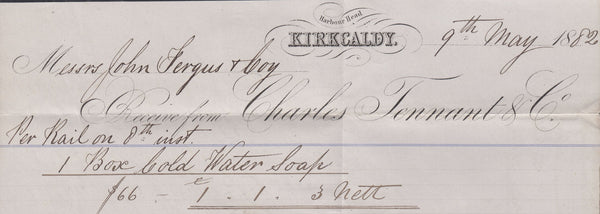 Harbour Head
KIRKCALDY. 9th May 1882
Messrs John Fergus & Coy
Receive from Charles Tennant & Co.
Per Rail on 8th inst.
1 Box Cold Water Soap
1 . 1 . 3 Nett